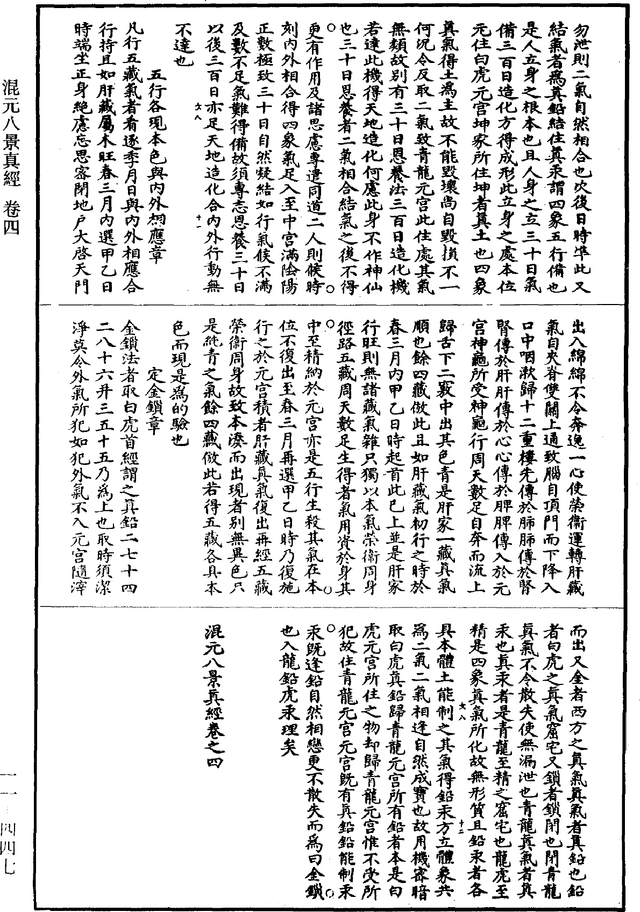 勿泄則二氣自然相合也次後日時準此又
結氣者為真鉛結住真汞謂四象五行備也
是人立身之根本也且人身之立三十日氣
備三百日造化方得成形此立身之處本位
元住白虎元宮坤家所住坤者真土也四象
真氣得土為主故不能毀壞尚自毀損不一
何況令反取二氣致青龍元宮此住處其氣
無類故別有三十日恩養法三百日造化機
若達此機得天地造化何慮此身不作神仙
也三十日恩養者二氣相合結氣之後不得
更有作用及諸思慮專達同道二人則候時
刻內外相合得四象氣足入至中宮滿陰陽
正數極致三十日自然疑結如行氣候不滿
及數不足氣難得備故須專志恩養三十日
以後三百日亦足天地造化合內外行動無
不達也
五行各現本色與內外相應章
凡行五藏氣者看逐季月日與內外相應合
行持且如肝藏屬木旺春三月內選甲乙日
時端坐正身絕慮忘思密閉地戶大啓天門
出入綿綿不令奔逸一心使榮衛運轉肝藏
氣自夾脊雙關上通致腦自頂門而下降入
口中咽漱歸十二重樓先傳於肺肺傳於腎
腎傳於肝肝傳於心心傳於脾脾傳入於元
宮神龜所受神龜行周天數足自奔而流上
歸舌下二竅中出其色青是肝家一藏真氣
順也餘四藏倣此且如肝藏氣初行之時於
春三月內甲乙日時起首此巳上並是肝家
行旺則無諸藏氣雜只獨以本氣榮衛周身
徑路五藏周天數足生得者氣用資於身其
中至精納於元宮亦是五行生殺其氣在本
位不復出至春三月再選甲乙日時乃復施
行之於元宮積者肝藏真氣復出再經五藏
榮衛周身故致本湊而出現者別無異色只
是純青之氣餘四藏倣此若得五藏各具本
色而現是為的驗也
定金鎖章
金鎖法者取白虎首經謂之真鉛二七十四
二八十六升三五十五乃為上也取時須潔
淨莫令外氣所犯如犯外氣不入元宮隨滓
而出又金者西方之真氣真氣者真鉛也鉛
者白虎之真氣窟宅又鎖者鎖閉也閉青龍
真氣不令散失使無漏泄也青龍真氣者真
汞也真汞者是青龍至精之窟宅也龍虎至
精是四象真氣所化故無形質且鉛汞者各
具本體土能制之其氣得鉛汞方立體象共
為二氣二氣相逢自然成寶也故用機密暗
取白虎真鉛歸青龍元宮所有鉛者本是白
虎元宮所住之物却歸青龍元宮惟不受所
犯故住青龍元宮元宮既有真鉛鉛能制汞
汞既逢鉛自然相戀更不散失而為曰金鎖
也入龍鉛虎汞理矣
混元八景真經卷之四
混元八景真經 卷四
一一 四四七